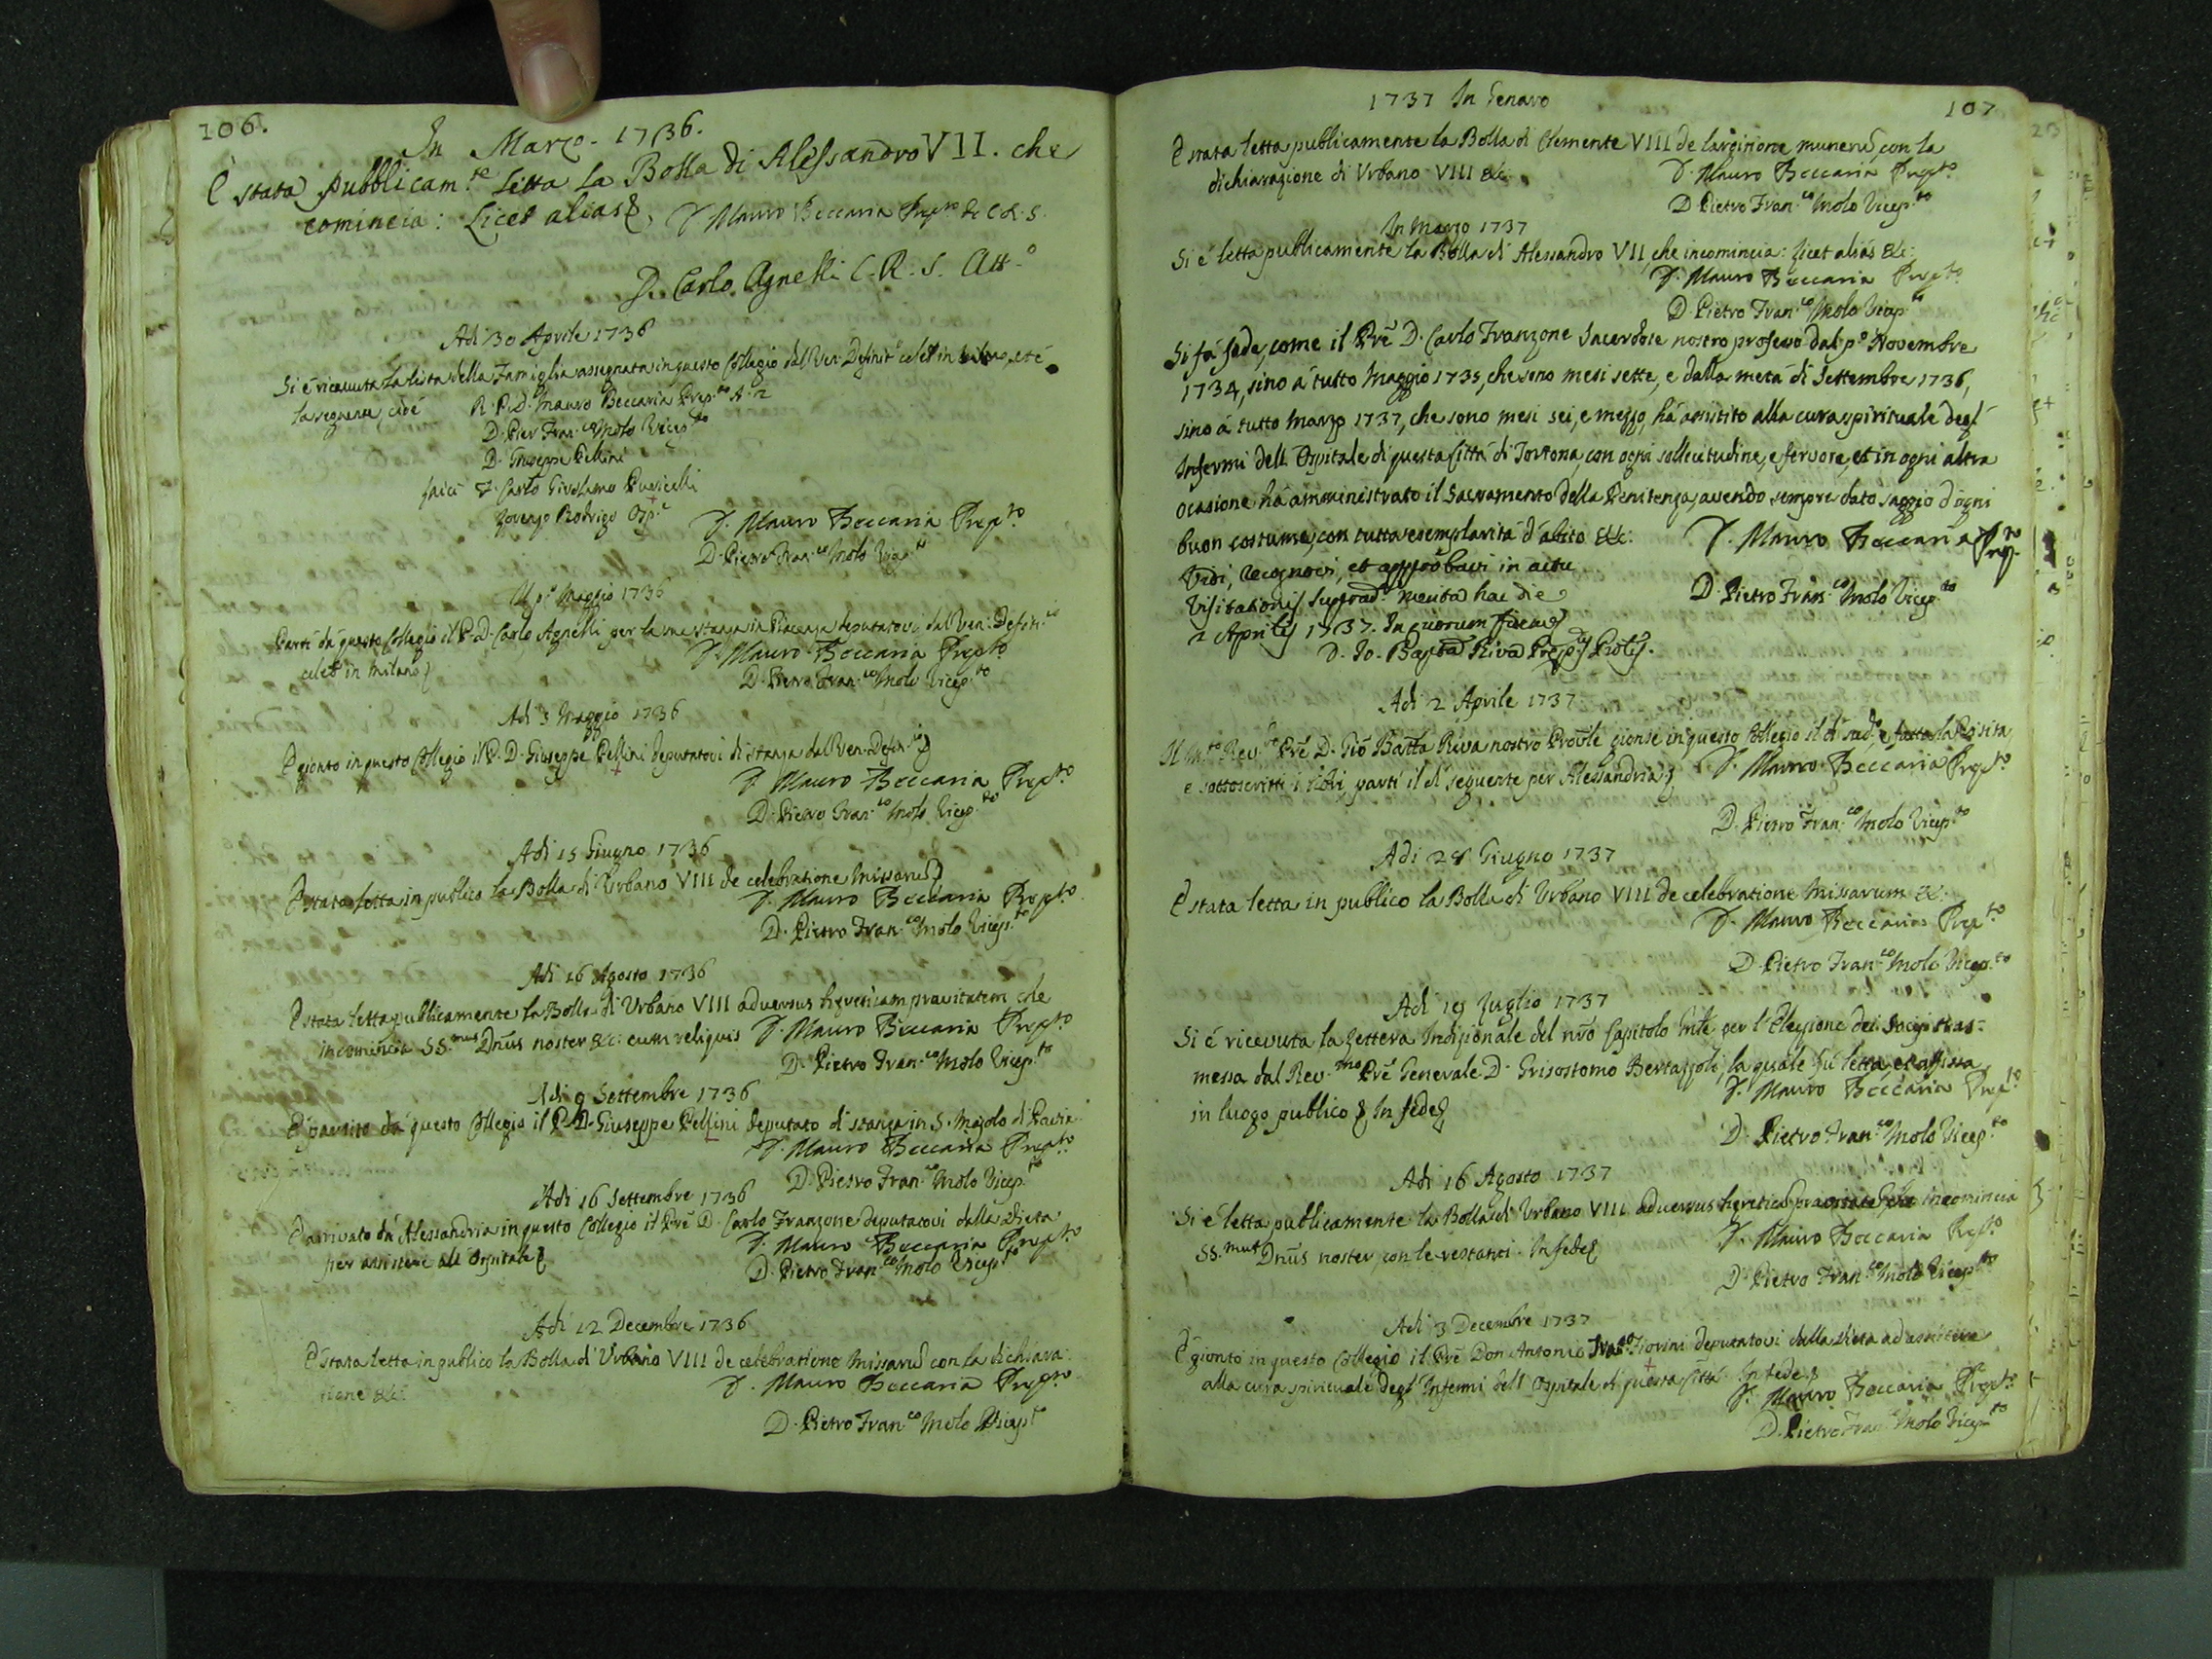 106.
In Marzo. 1736.
È stata pubblicam.te letta la Bolla di Alessandro VII. che
comincia: Licet alias &, D. Mauro Beccaria Prep.to de C.R.S.
D. Carlo Agnelli C.R.S. Att.o
Adi 30 Aprile 1736
Si è ricevuta la lista della Famiglia assegnata in questo Collegio dal Ven. Definit.o celeb.to in Milano, et è
la seguente, cioè R. P. D. Mauro Beccaria Prep.to A. 2
D. Pier Fran.co Molo Vicep.to
D. Giuseppe Pellini
Laici F. Carlo Girolamo Puricelli
Lorenzo Rodrigo Osp.e
D. Mauro Beccaria Prep.to
D. Pietro Fran.co Molo Vicep.to
Il p.o Maggio 1736
Partì da questo Collegio il P. D. Carlo Agnelli per la sua stanza in Piacenza deputatovi dal Ven. Definit.io
celeb.to in Milano &
D. Mauro Beccaria Prep.to
D. Pietro Fran.co Molo Vicep.to
Adi 3 Maggio 1736
È gionto in questo Collegio il P. D. Giuseppe Pellini deputatovi di stanza dal Ven. Defin.io &
D. Mauro Beccaria Prep.to
D. Pietro Fran.co Molo Vicep.to
Adi 15 Giugno 1736
È stata letta in publico la Bolla di Urbano VIII de celebratione Missarũ &
D. Mauro Beccaria Prep.to
D. Pietro Fran.co Molo Vicep.to
Adi 16 Agosto 1736
È stata letta publicamente la Bolla di Urbano VIII adversus hereticam pravitatem che
incomincia SS.mus Dñus noster &c: cum reliquis D. Mauro Beccaria Prep.to
D. Pietro Fran.co Molo Vicep.to
Adi 9 Settembre 1736
È partito da questo Collegio il P. D. Giuseppe Pellini deputato di stanza in S. Majolo di Pavia
D. Mauro Beccaria Prep.to
D. Pietro Fran.co Molo Vicep.to
Adi 16 Settembre 1736
È arrivato da Alessandria in questo Collegio il Prẽ D. Carlo Franzone deputatovi dalla Dieta
per assistere all'Ospitale &
D. Mauro Beccaria Prep.to
D. Pietro Fran.co Molo Vicep.to
Adi 12 Decembre 1736
È stata letta in publico la Bolla di Urbano VIII de celebratione Missarũ con la dichiara-
zione &c:
D. Mauro Beccaria Prep.to
D. Pietro Fran.co Molo Vicep.to
107
1737 In Genaro
È stata letta publicamente la Bolla di Clemente VIII de largitione munerũ, con la
dichiarazione di Urbano VIII &c. D. Mauro Beccaria Prep.to
D. Pietro Fran.co Molo Vicep.to
In Marzo 1737
Si è letta publicamente la Bolla di Alessandro VII, che incomincia: Licet alias &c:
D. Mauro Beccaria Prep.to
D. Pietro Fran.co Molo Vicep.to
Si fà fede, come il Prẽ D. Carlo Franzone Sacerdote nostro professo dal p.o Novembre
1734, sino à tutto Maggio 1735, che sono mesi sette, e dalla metà di Settembre 1736,
sino à tutto Marzo 1737, che sono mesi sei, e mezzo, hà assistito alla cura spirituale degl'
Infermi dell'Ospitale di questa Città di Tortona, con ogni sollecitudine, e fervore, et in ogni altra
ocasione hà amministrato il Sacramento della Penitenza, avendo sempre dato saggio d'ogni
buon costume, con tutta esemplarità d'abito &c: D. Mauro Beccaria Prep.to
Vidi, recognovi, et approbavi in actu
Visitationis suprad.a menta hac die D. Pietro Fran.co Molo Vicep.to
2 Aprilis 1737. In quorum fidem &
D. Jo. Bapta Riva Prep.tus Prãlis.
Adi 2 Aprile 1737
Il M.to Rev.do Prẽ D. Gio Batta Riva nostro Prov̄le gionse in questo Collegio il dì sud.o, e fatta la Visita,
e sottoscritti i libri, partì il dì seguente per Alessandria & D. Mauro Beccaria Prep.to
D. Pietro Fran.co Molo Vicep.to
Adi 28 Giugno 1737
È stata letta in publico la Bolla di Urbano VIII de celebratione Missarum &c.
D. Mauro Beccaria Prep.to
D. Pietro Fran.co Molo Vicep.to
Adi 19 Luglio 1737
Si è ricevuta la Lettera Indizionale del nrõ Capitolo Gñle per l'Elezione dei Socii tras-
messa dal Rev.mo Prẽ Generale D. Grisostomo Bertazzoli, la quale fù letta, et affissa
in luogo publico & In fede & D. Mauro Beccaria Prep.to
D. Pietro Fran.co Molo Vicep.to
Adi 16 Agosto 1737
Si è letta publicamente la Bolla di Urbano VIII adversus hereticã pravitatẽ, che incomincia
SS.mus Dñus noster, con le restanti. In fede &
D. Mauro Beccaria Prep.to
D. Pietro Fran.co Molo Vicep.to
Adi 3 Decembre 1737
È gionto in questo Collegio il Prẽ Don Antonio Fran.co Fiorini deputatovi dalla Dieta ad assistere
alla cura spirituale degl'Infermi dell'Ospitale di questa Città. In fede &
D. Mauro Beccaria Prep.to
D. Pietro Fran.co Molo Vicep.to